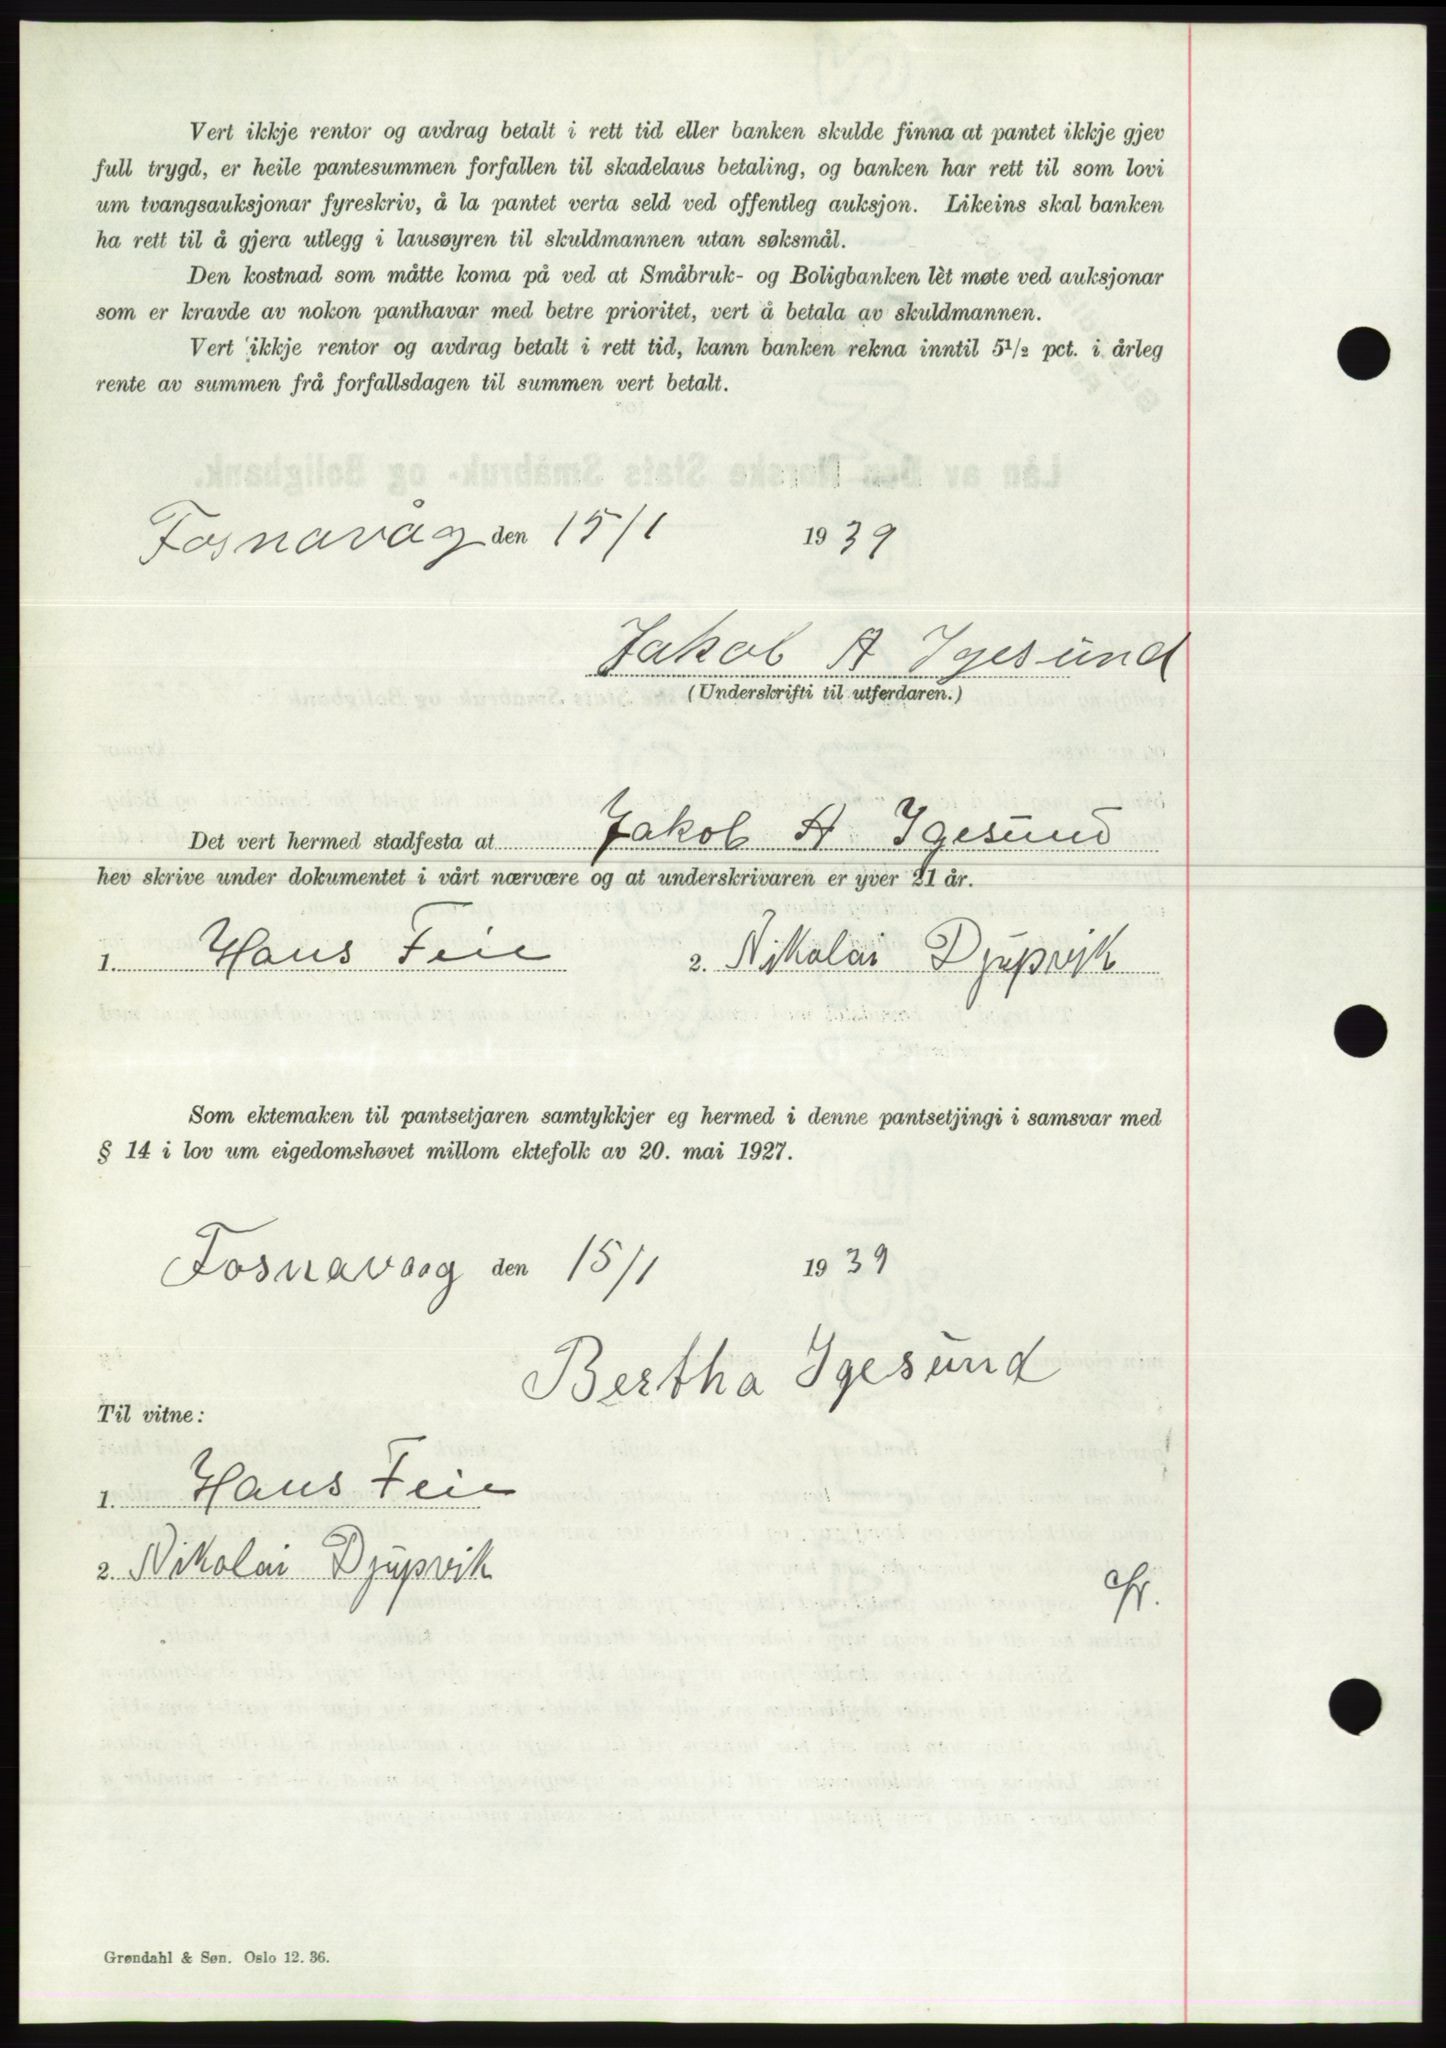 Vert ikkje rentor og avdrag betalt i rett tid eller banken skulde finna at pantet ikkje gjev
full trygd, er heile pantesummen forfallen til skadelaus betaling, og banken har rett til som lovi
um tvangsauksjonar fyreskriv, å la pantet verta seld ved offentleg auksjon. Likeins skal banken
ha rett til å gjera utlegg i lausøyren til skuldmannen utan søksmål.
Den kostnad som måtte koma på ved at Småbruk- og Boligbanken lèt møte ved auksjonar
som er kravde av nokon panthavar med betre prioritet, vert å betala av skuldmannen.
Vert ikkje rentor og avdrag betalt i rett tid, kann banken rekna inntil 5½ pct. i årleg
rente av summen frå forfallsdagen til summen vert betalt.
Lån av Den Norske Stats Småbruk- og Boligbank.
Fosnavåg den 15/1 1939
Jakob A Igesund
(Underskrifti til utferdaren.)
Det vert hermed stadfesta at Jakob A Igesund
hev skrive under dokumentet i vårt nærvære og at underskrivaren er yver 21 år.
1. Hans Feie 2. Nikolai Djupvik
Som ektemaken til pantsetjaren samtykkjer eg hermed i denne pantsetjingi i samsvar med
§ 14 i lov um eigedomshøvet millom ektefolk av 20. mai 1927.
Fosnavaag den 15/1 1939
Bertha Igesund
Til vitne:
1. Hans Feie
2. Nikolai Djupvik
Grøndahl & Søn. Oslo 12. 36.